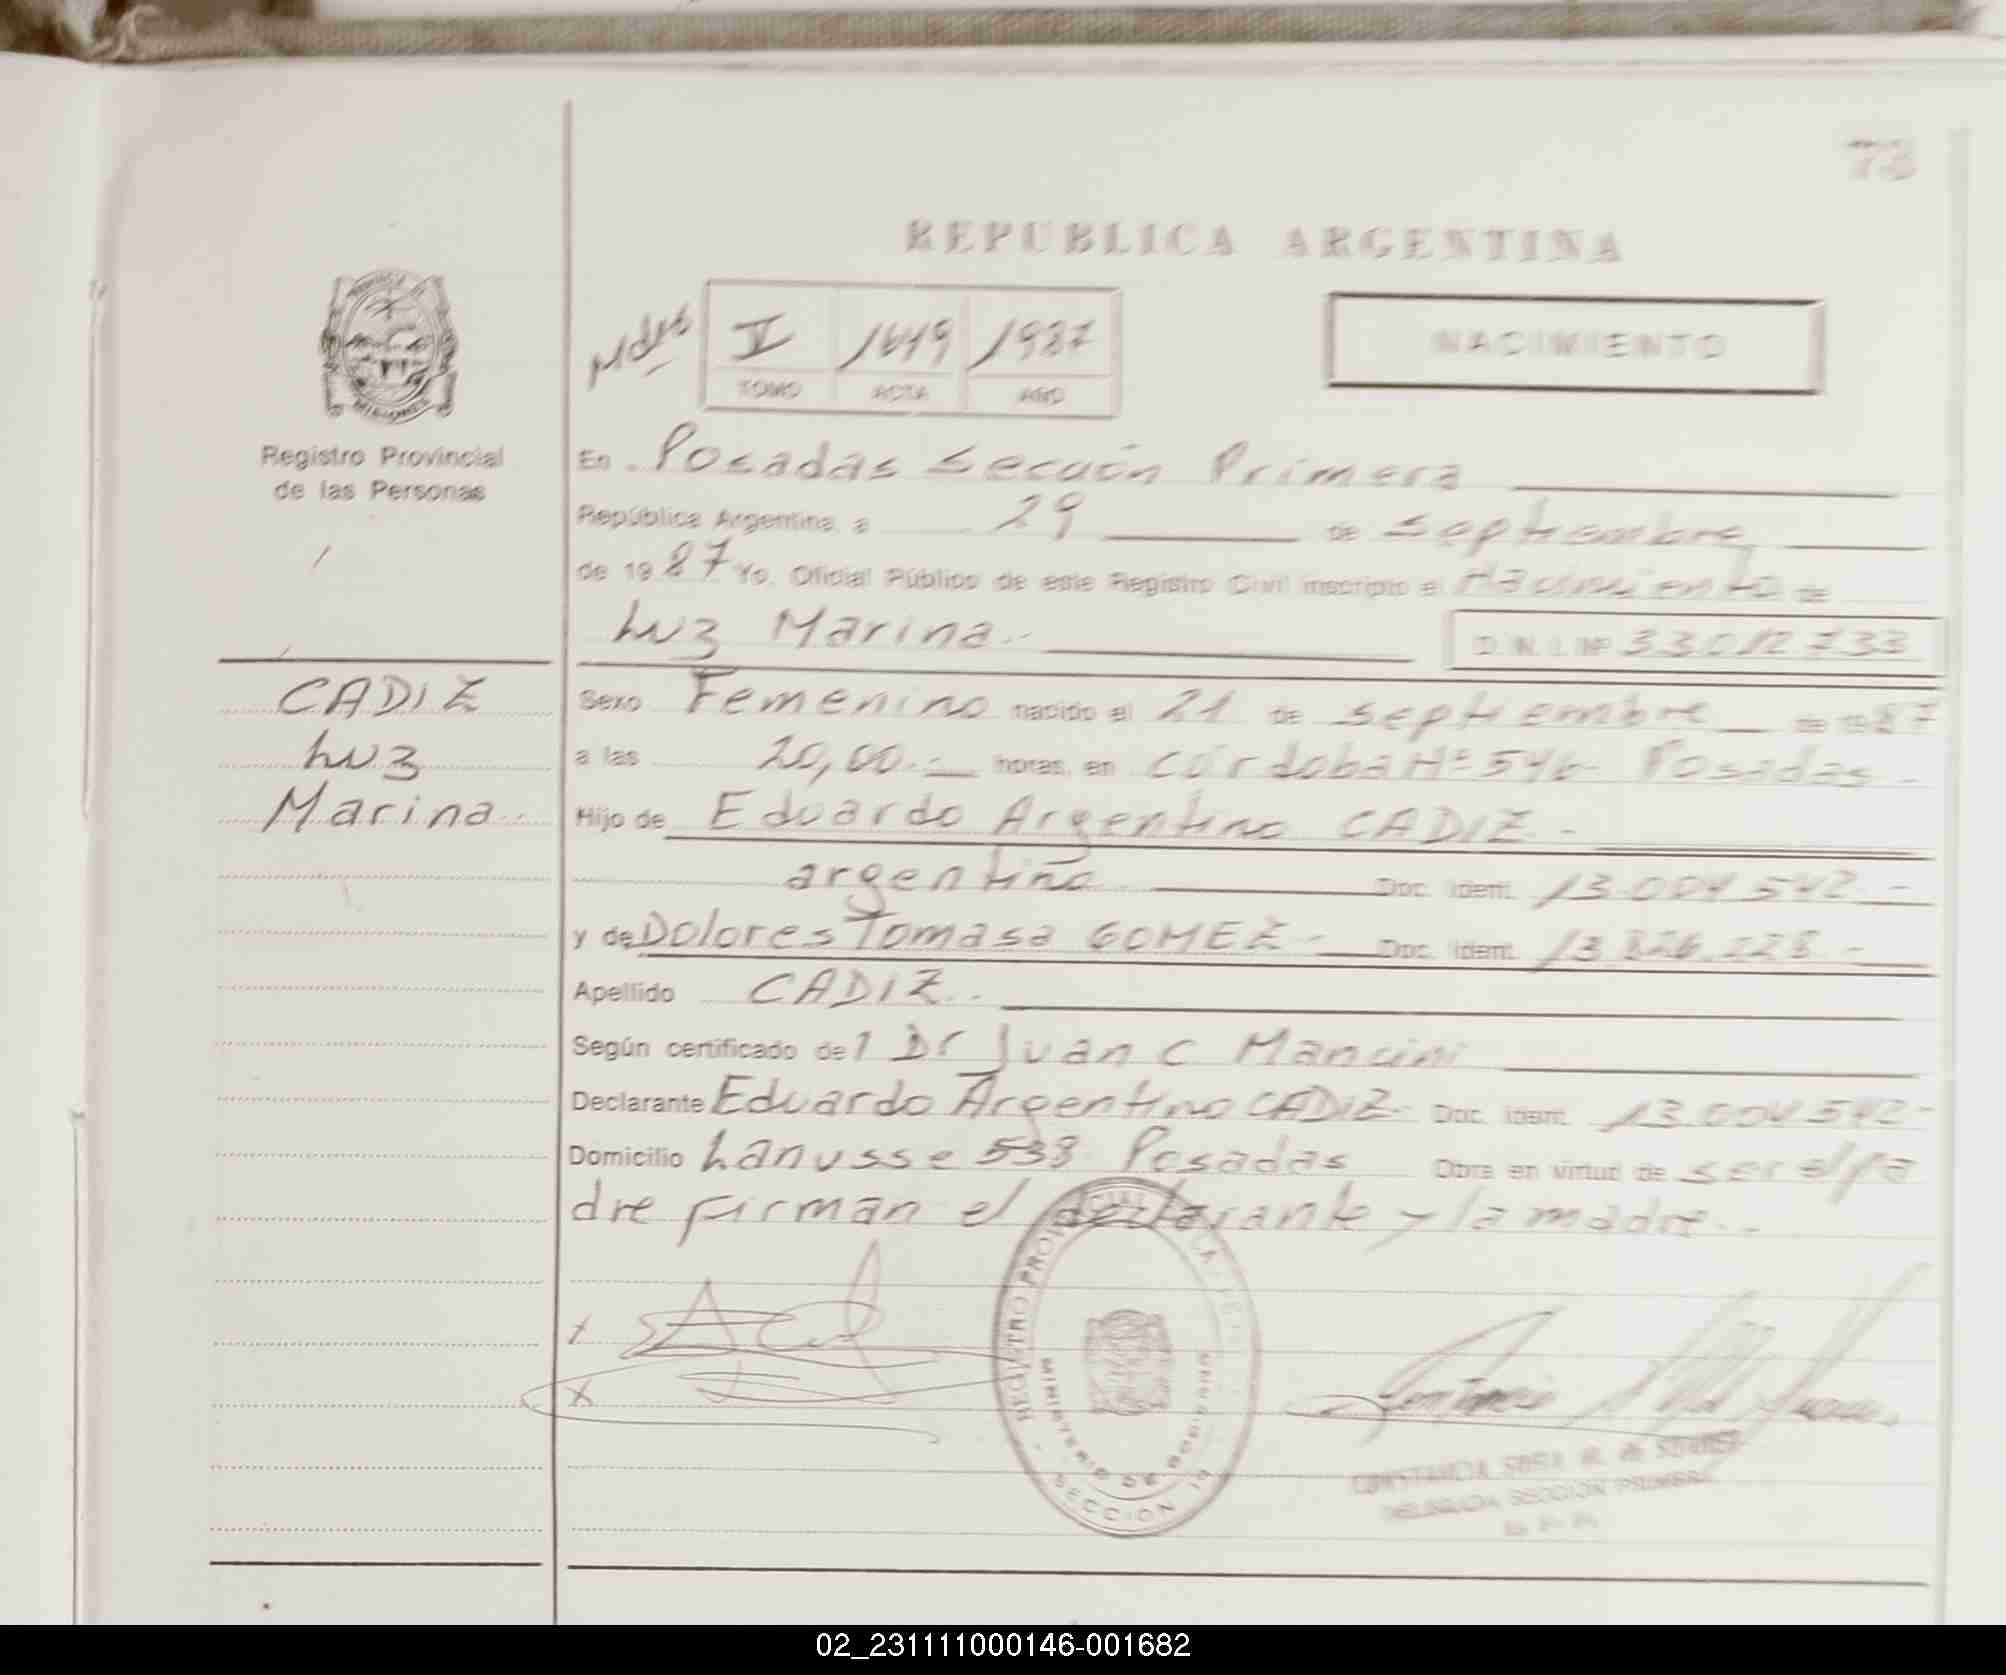 73
REPUBLICA ARGENTINA
V 1619 1987
TOMO ACTA AÑO
NACIMIENTO
MISIONES
Registro Provincial
de las Personas
En Posadas Sección Primera
República Argentina, a 29 de septiembre
de 1987 Yo, Oficial Público de este Registro Civil inscripto el Nacimiento de
Luz Marina.-
D. N. I. Nº 33012733
CADIZ
Luz
Marina.-
Sexo Femenino nacido el 21 de septiembre de 1987
a las 20,00.- horas, en Córdoba Nº 546 Posadas -
Hijo de Eduardo Argentino CADIZ -
argentino Doc. Ident. 13.004.542.-
y de Dolores Tomasa GOMEZ - Doc. Ident. 13.826.228.-
Apellido CADIZ.-
Según certificado del Dr Juan C Mancini
Declarante Eduardo Argentino CADIZ- Doc. Ident. 13.004.542-
Domicilio Lanusse 538 Posadas Obra en virtud de ser el pa
dre firman el declarante y la madre.-
X
X
REGISTRO PROVINCIAL DE LAS
MINISTERIO DE GOBIERNO
SECCION 1ª
DELEGADA SECCION PRIMERA
02_231111000146-001682